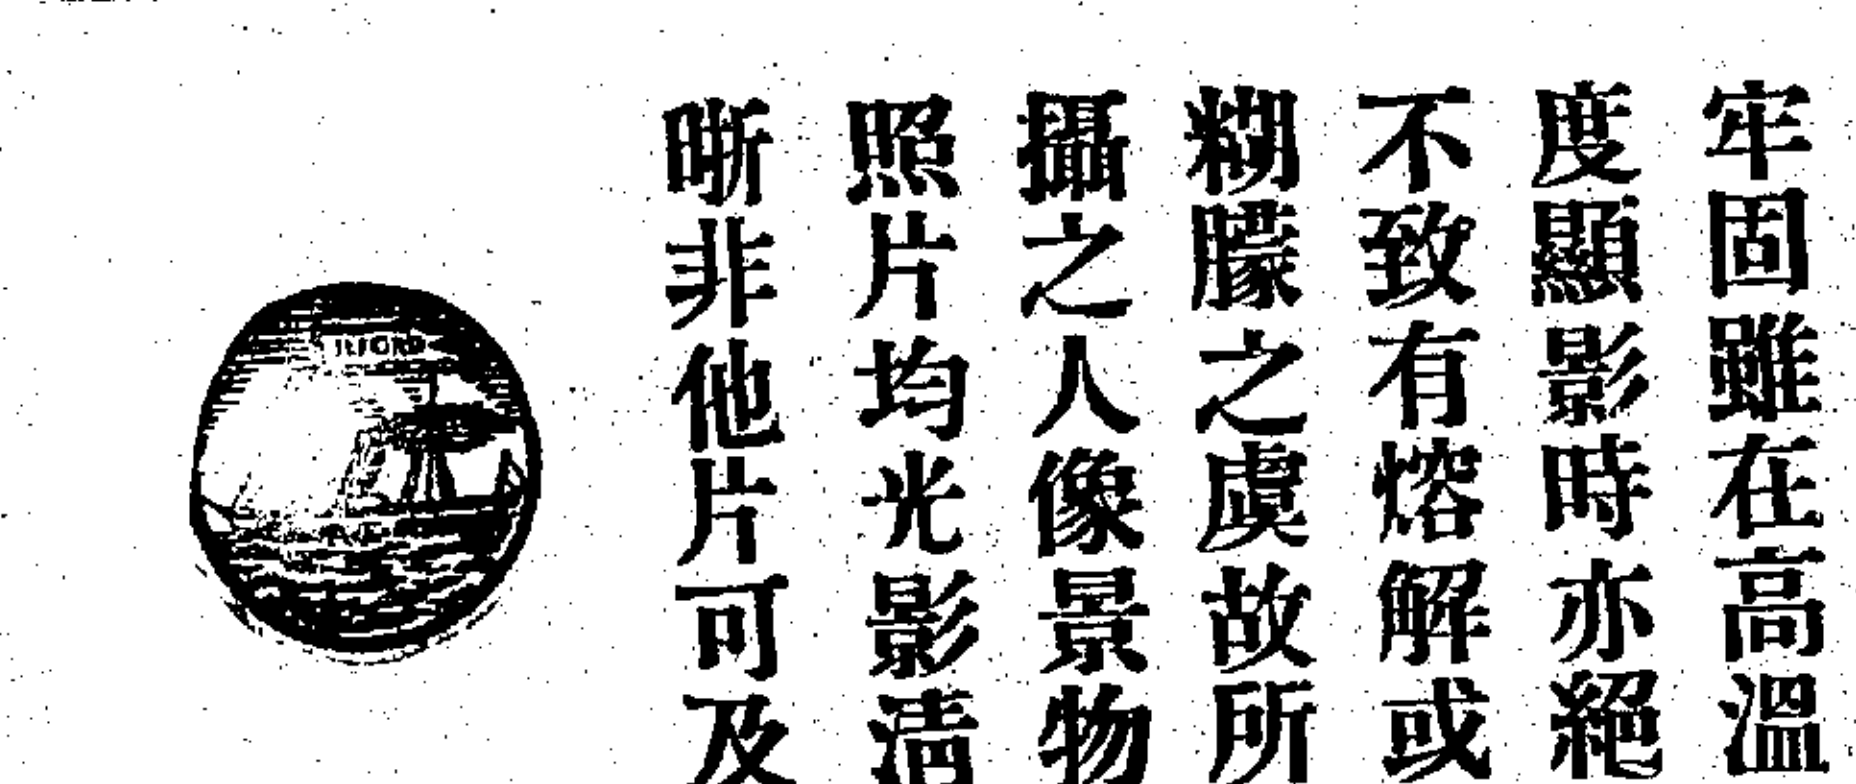 牢固雖在高溫
度顯影時亦絕
不致有熔解或
糊朦之虞故所
攝之人像景物
照片均光影清
晰非他片可及
ILFORD